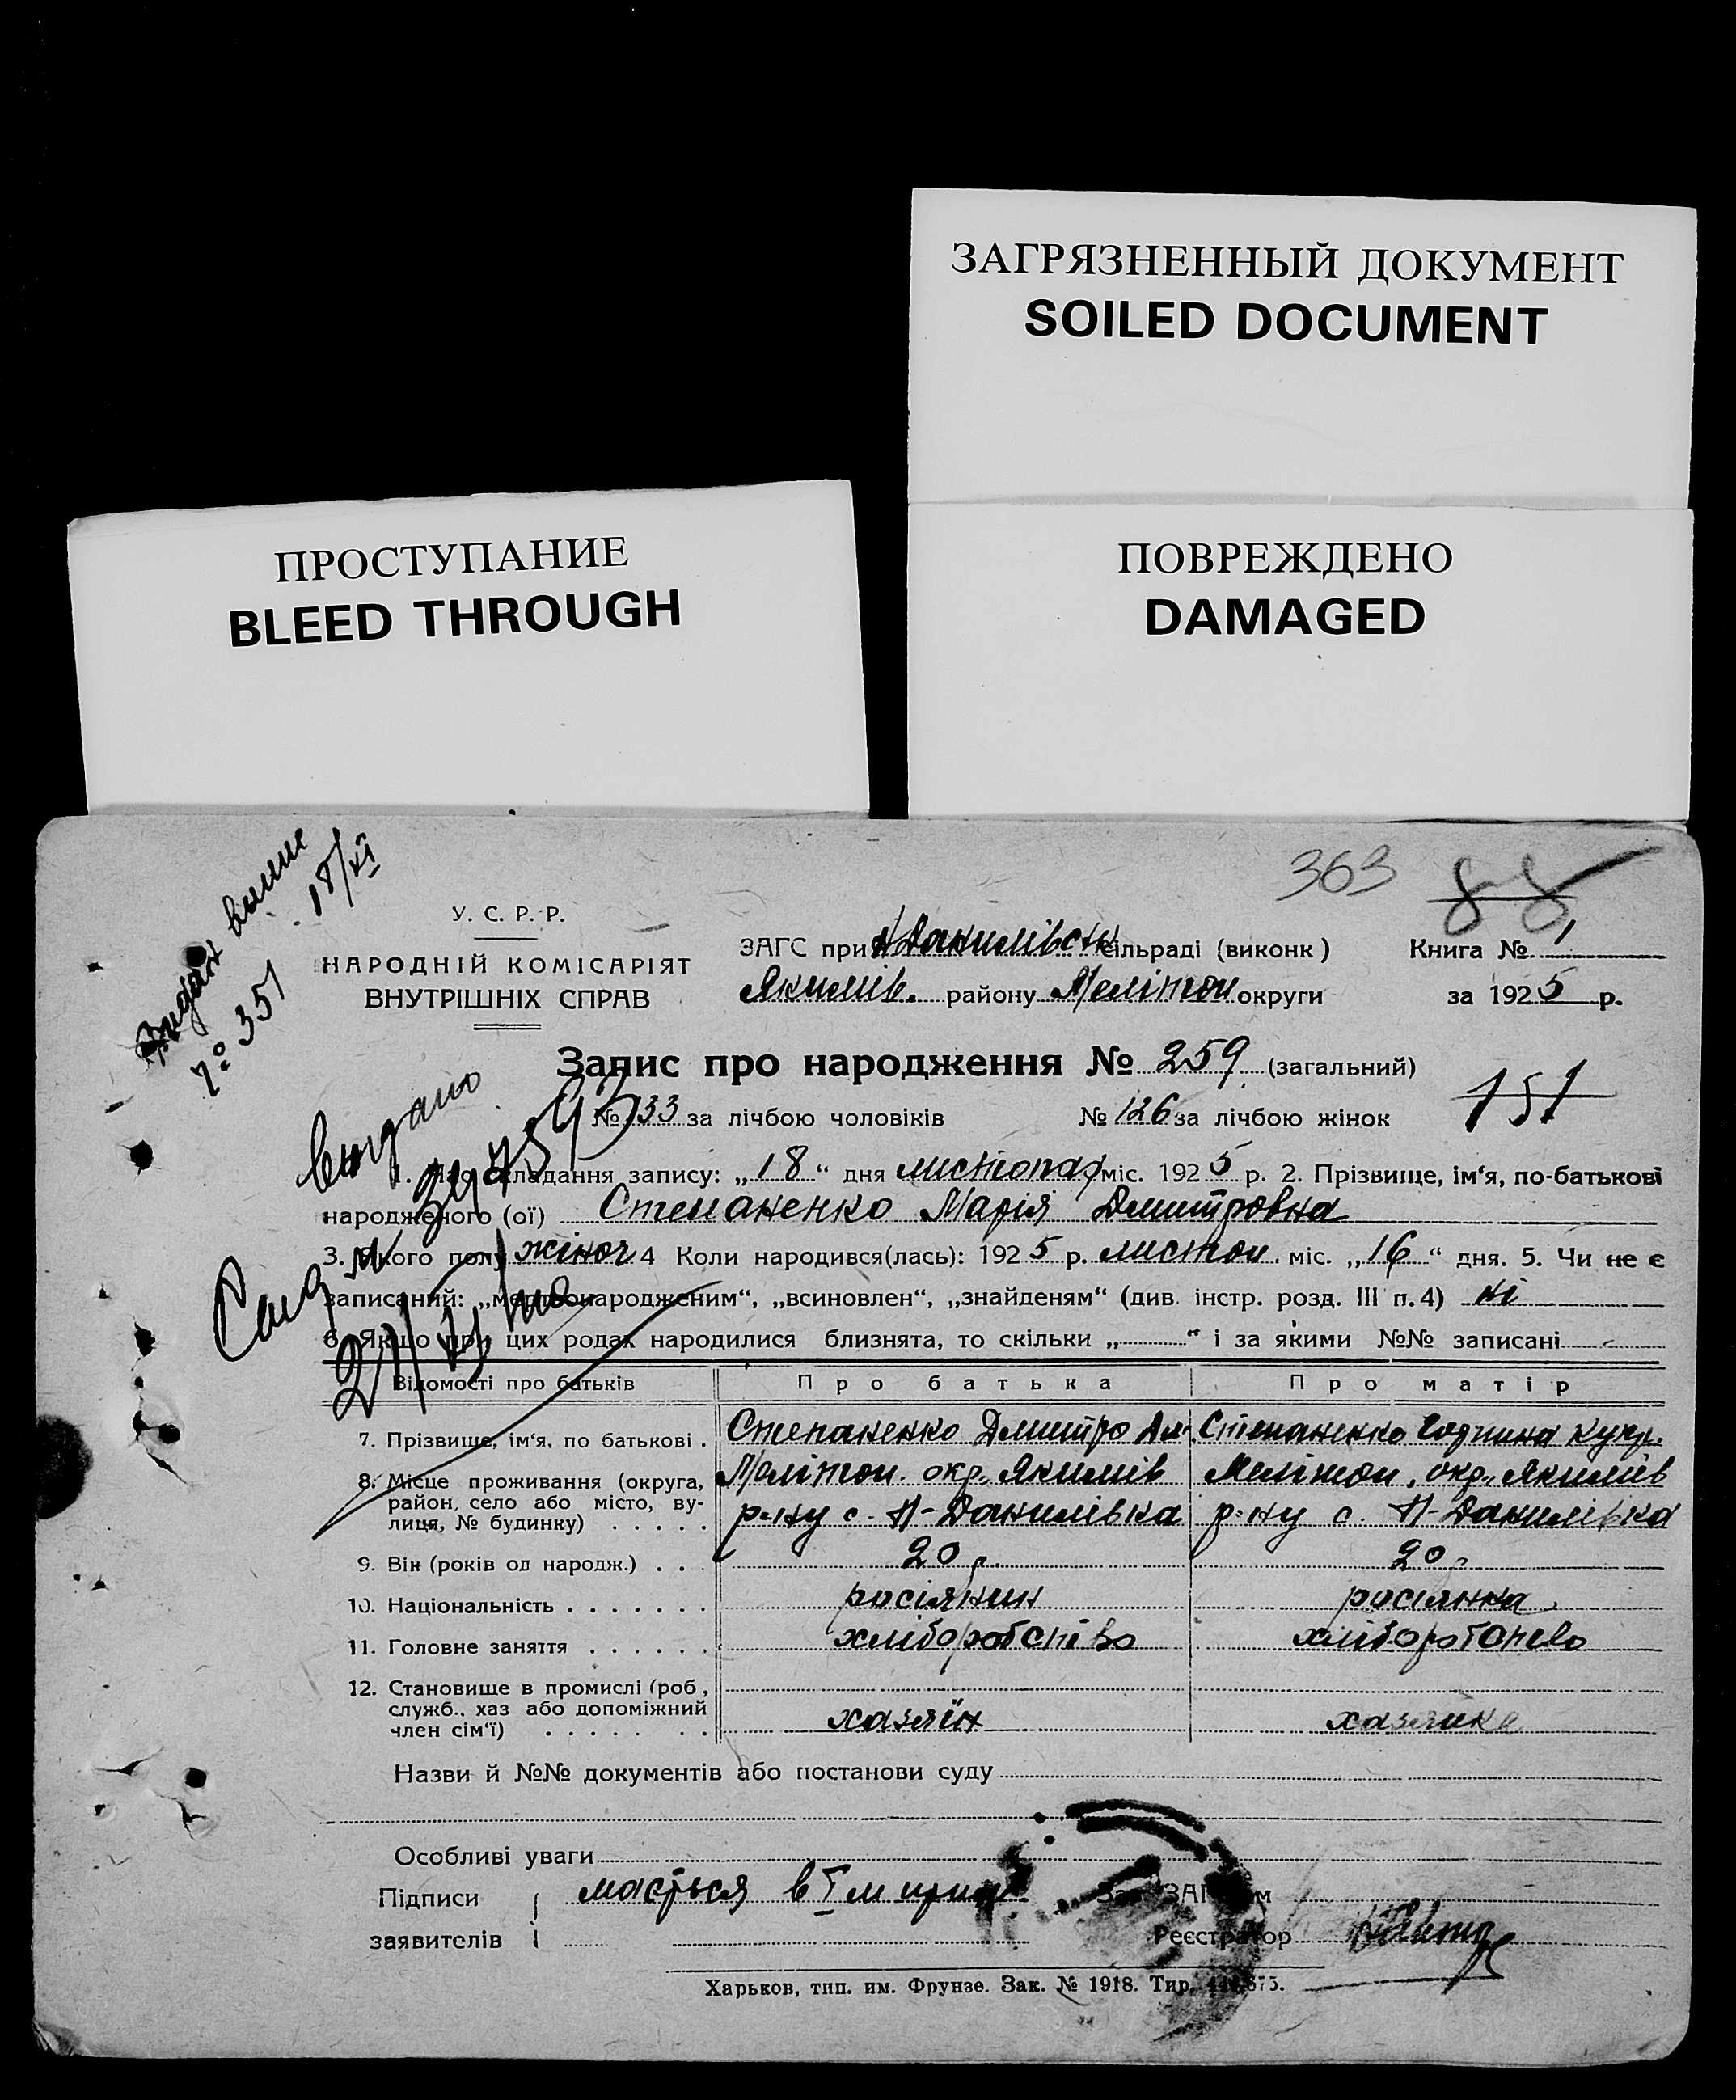 ЗАГРЯЗНЕННЫЙ ДОКУМЕНТ
SOILED DOCUMENT
ПРОСТУПАНИЕ
BLEED THROUGH
ПОВРЕЖДЕНО
DAMAGED
363
18/XI
№ 351
видано
У. С. Р. Р.
НАРОДНІЙ КОМІСАРІЯТ
ВНУТРІШНІХ СПРАВ
ЗАГС при Н Данилівськ сільраді (виконк) Книга № 1
Якимів. району Мелітоп округи за 1925 р.
Запис про народження № 259 (загальний)
№ 133 за лічбою чоловіків № 126 за лічбою жінок 151
складання запису: „18“ дня листопад міс. 1925 р. 2. Прізвище, ім‘я, по-батькові
народженого (ої) Степаненко Марія Дмитровна
3. Якого полу жіноч 4 Коли народився(лась): 1925 р. листоп. міс. „16“ дня. 5. Чи не є
записаний: „мертвонародженим“, „всиновлен“, „знайденям“ (див. інстр. розд. III п. 4) ні
6. Якщо при цих родах народилися близнята, то скільки „ “ і за якими №№ записані
Відомості про батьків Про батька Про матір
7. Прізвище, ім‘я, по батькові . Степаненко Дмитро Дм. Степаненко Купр.
8. Місце проживання (округа, район, село або місто, вулиця, № будинку) . . . . . Мелітоп. окр., Якимів Мелітоп, окр., Якимів
р-ну с. Н-Данилівка р-ну с. Н-Данилівка
9. Вік (років од народж.) . . . 20 р. 20 р.
10. Національність . . . . . . . росіянин росіянка
11. Головне заняття . . . . . . хліборобство хліборобство
12. Становище в промислі (роб., служб., хаз або допоміжний член сім‘ї) . . . . . . . хазяїн хазяйка
Назви й №№ документів або постанови суду
Особливі уваги
Підписи мається в І м
заявителів
Реєстратор
Харьков, тип. им. Фрунзе. Зак. № 1918. Тир.